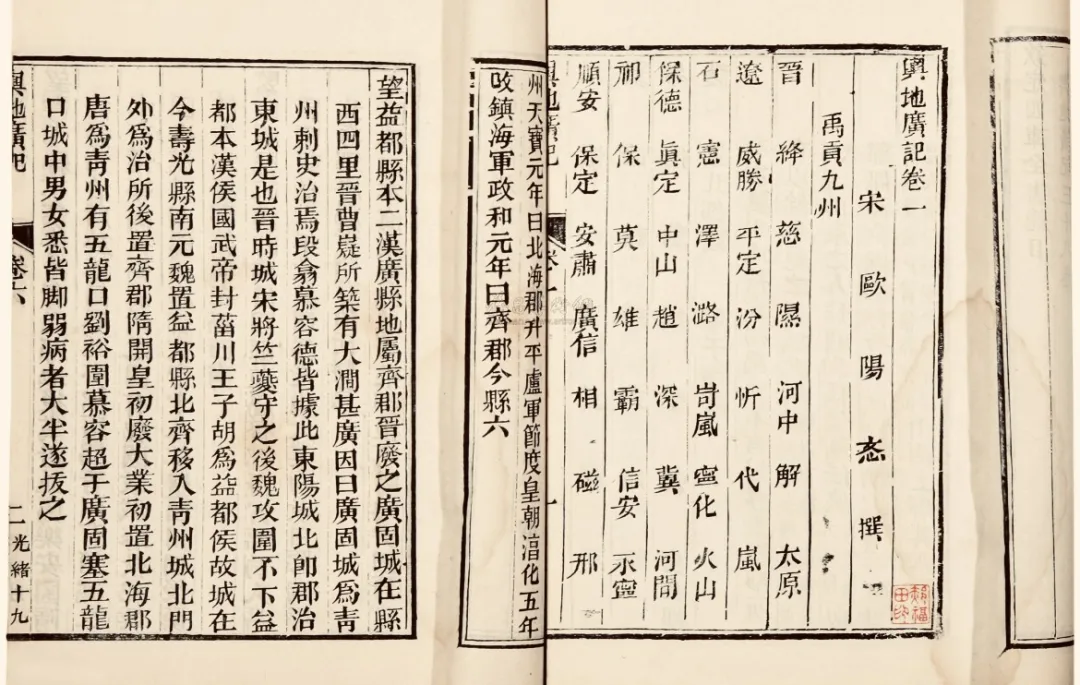 輿地廣記卷一
宋 歐陽忞 撰
禹貢九州
晉 絳 慈 隰 河中 解 太原
遼 威勝 平定 汾 忻 代 嵐
石 憲 澤 潞 岢嵐 寧化 火山
保德 眞定 中山 趙 深 冀 河間
祁 保 莫 雄 霸 信安 永寧
順安 保定 安肅 廣信 相 磁 邢
輿地廣記 卷一 一
州天寶元年曰北海郡升平盧軍節度皇朝淳化五年
改鎮海軍政和元年曰齊郡今縣六
望益都縣本二漢廣縣地屬齊郡晉廢之廣固城在縣
西四里晉曹嶷所築有大澗甚廣因曰廣固城爲青
州刺史治焉段龕慕容德皆據此東陽城北卽郡治
東城是也晉時城宋將竺夔守之後魏攻圍不下益
都本漢侯國武帝封菑川王子胡爲益都侯故城在
今壽光縣南元魏置益都縣北齊移入青州城北門
外爲治所後置齊郡隋開皇初廢大業初置北海郡
唐爲青州有五龍口劉裕圍慕容超于廣固塞五龍
口城中男女悉皆脚弱病者大半遂拔之
輿地廣記 卷六 二 光緒十九